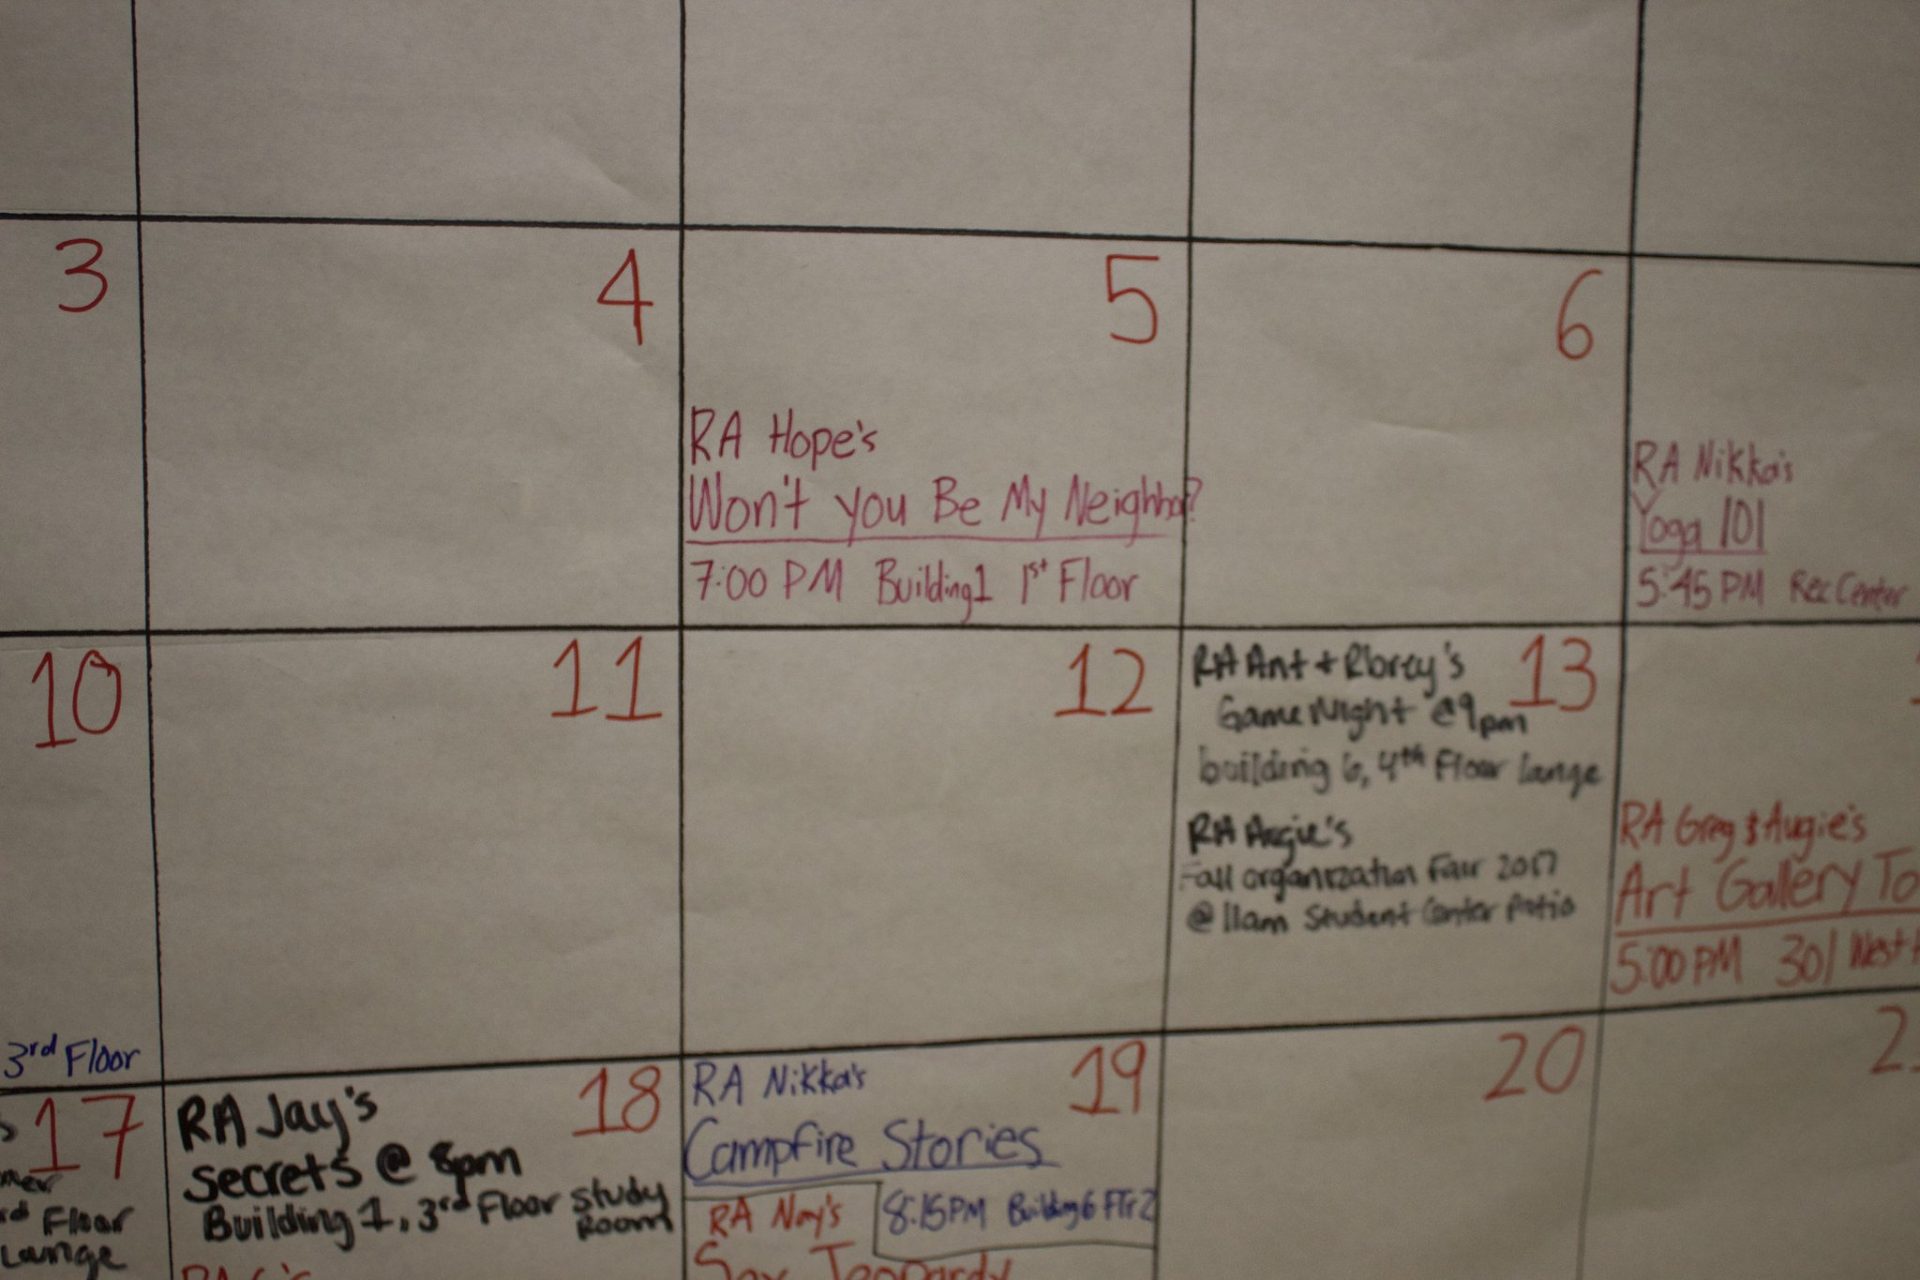 3
4
5
RA Hope's
Won't you Be My Neighbor?
7:00 PM Building 1 1st Floor
6
RA Nikka's
Yoga 101
5:45 PM Rec Center
10
3rd Floor
11
12
13
RA Ant + 
Game Night @ 9pm
building 6, 4th Floor lounge
RA Angie's
Fall organization Fair 2017
@ 11am Student Center Patio
RA Greg & Augie's
Art Gallery To
5:00 PM 301 West
17
rd Floor
Lounge
18
RA Jay's
secrets @ 8pm
Building 1, 3rd Floor Study
Room
19
RA Nikka's
Campfire Stories
8:15PM Building 6 Flr 2
RA Nay's
Sex Jeopardy
20
2